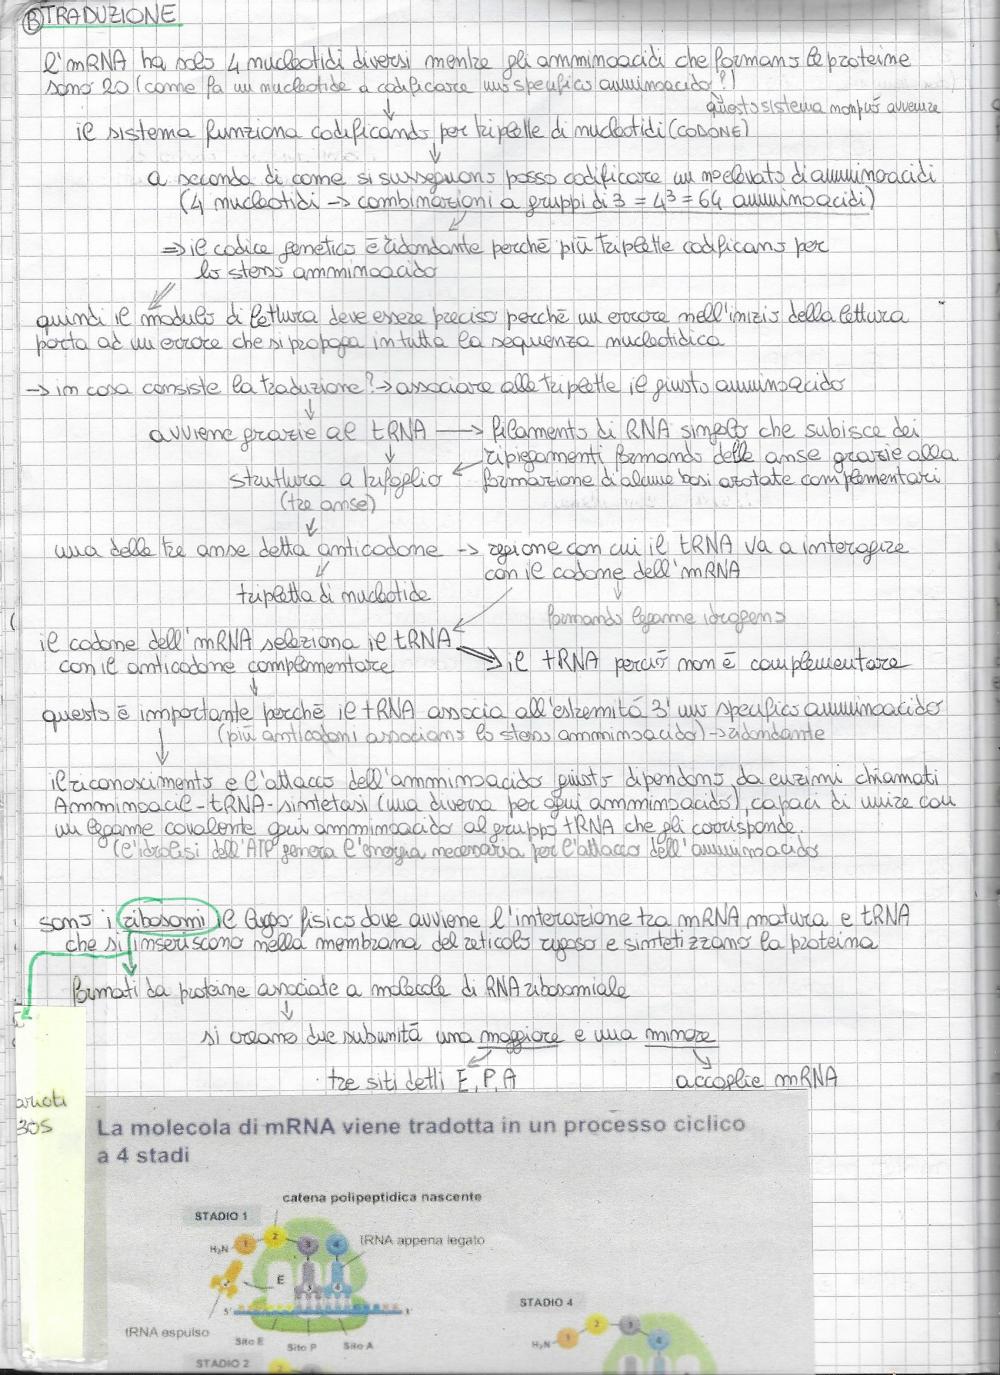 B TRADUZIONE
l'mRNA ha solo 4 nucleotidi diversi mentre gli amminoacidi che formano le proteine
sono 20 (come fa un nucleotide a codificare uno specifico amminoacido?)
questo sistema non può avvenire
il sistema funziona codificando per triplette di nucleotidi (CODONE)
a seconda di come si susseguono posso codificare un n° elevato di amminoacidi
(4 nucleotidi → combinazioni a gruppi di 3 = 4³ = 64 amminoacidi)
⇒ il codice genetico è ridondante perché più triplette codificano per
lo stesso amminoacido
quindi il modulo di lettura deve essere preciso perché un errore nell'inizio della lettura
porta ad un errore che si propaga in tutta la sequenza nucleotidica
→ in cosa consiste la traduzione? → associare alle triplette il giusto amminoacido
avviene grazie al tRNA → filamento di RNA singolo che subisce dei
ripiegamenti formando delle anse grazie alla
struttura a trifoglio
formazione di alcune basi azotate complementari
(tre anse)
una delle tre anse detta anticodone → regione con cui il tRNA va a interagire
con il codone dell'mRNA
tripletta di nucleotide
formando legame idrogeno
il codone dell'mRNA seleziona il tRNA
con il anticodone complementare
il tRNA perciò non è complementare
questo è importante perché il tRNA associa all'estremità 3' uno specifico amminoacido
(più anticodoni associano lo stesso amminoacido) → ridondante
il riconoscimento e l'attacco dell'amminoacido giusto dipendono da enzimi chiamati
Amminoacil-tRNA-sintetasi (una diversa per ogni amminoacido), capaci di unire con
un legame covalente ogni amminoacido al gruppo tRNA che gli corrisponde.
(l'idrolisi dell'ATP genera l'energia necessaria per l'attacco dell'amminoacido
sono i ribosomi il luogo fisico dove avviene l'interazione tra mRNA matura e tRNA
che si inseriscono nella membrana del reticolo rugoso e sintetizzano la proteina
formati da proteine associate a molecole di RNA ribosomiale
si creano due subunità una maggiore e una minore
tre siti detti E, P, A
accoglie mRNA
arioti
30S
La molecola di mRNA viene tradotta in un processo ciclico
a 4 stadi
catena polipeptidica nascente
STADIO 1
H₂N 1 2 3 4
tRNA appena legato
E
3 4
5' 3'
tRNA espulso
Sito E
Sito P
Sito A
STADIO 2
STADIO 4
H₂N 1 2 3 4